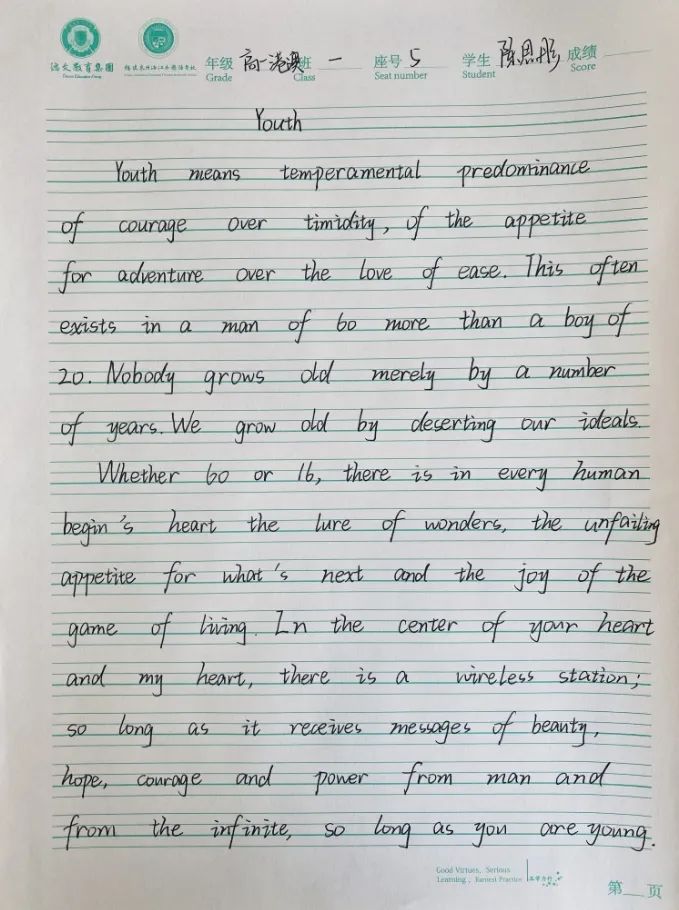 鸿文教育集团
年级 高一港澳 班 一 座号 5 学生 陈思彤 成绩
Grade Class Seat number Student Score
Youth
Youth means temperamental predominance
of courage over timidity, of the appetite
for adventure over the love of ease. This often
exists in a man of 60 more than a boy of
20. Nobody grows old merely by a number
of years. We grow old by deserting our ideals.
Whether 60 or 16, there is in every human
begin's heart the lure of wonders, the unfailing
appetite for what's next and the joy of the
game of living. In the center of your heart
and my heart, there is a wireless station;
so long as it receives messages of beauty,
hope, courage and power from man and
from the infinite, so long as you are young.
Good Virtues, Serious
Learning, Earnest Practice
第 页